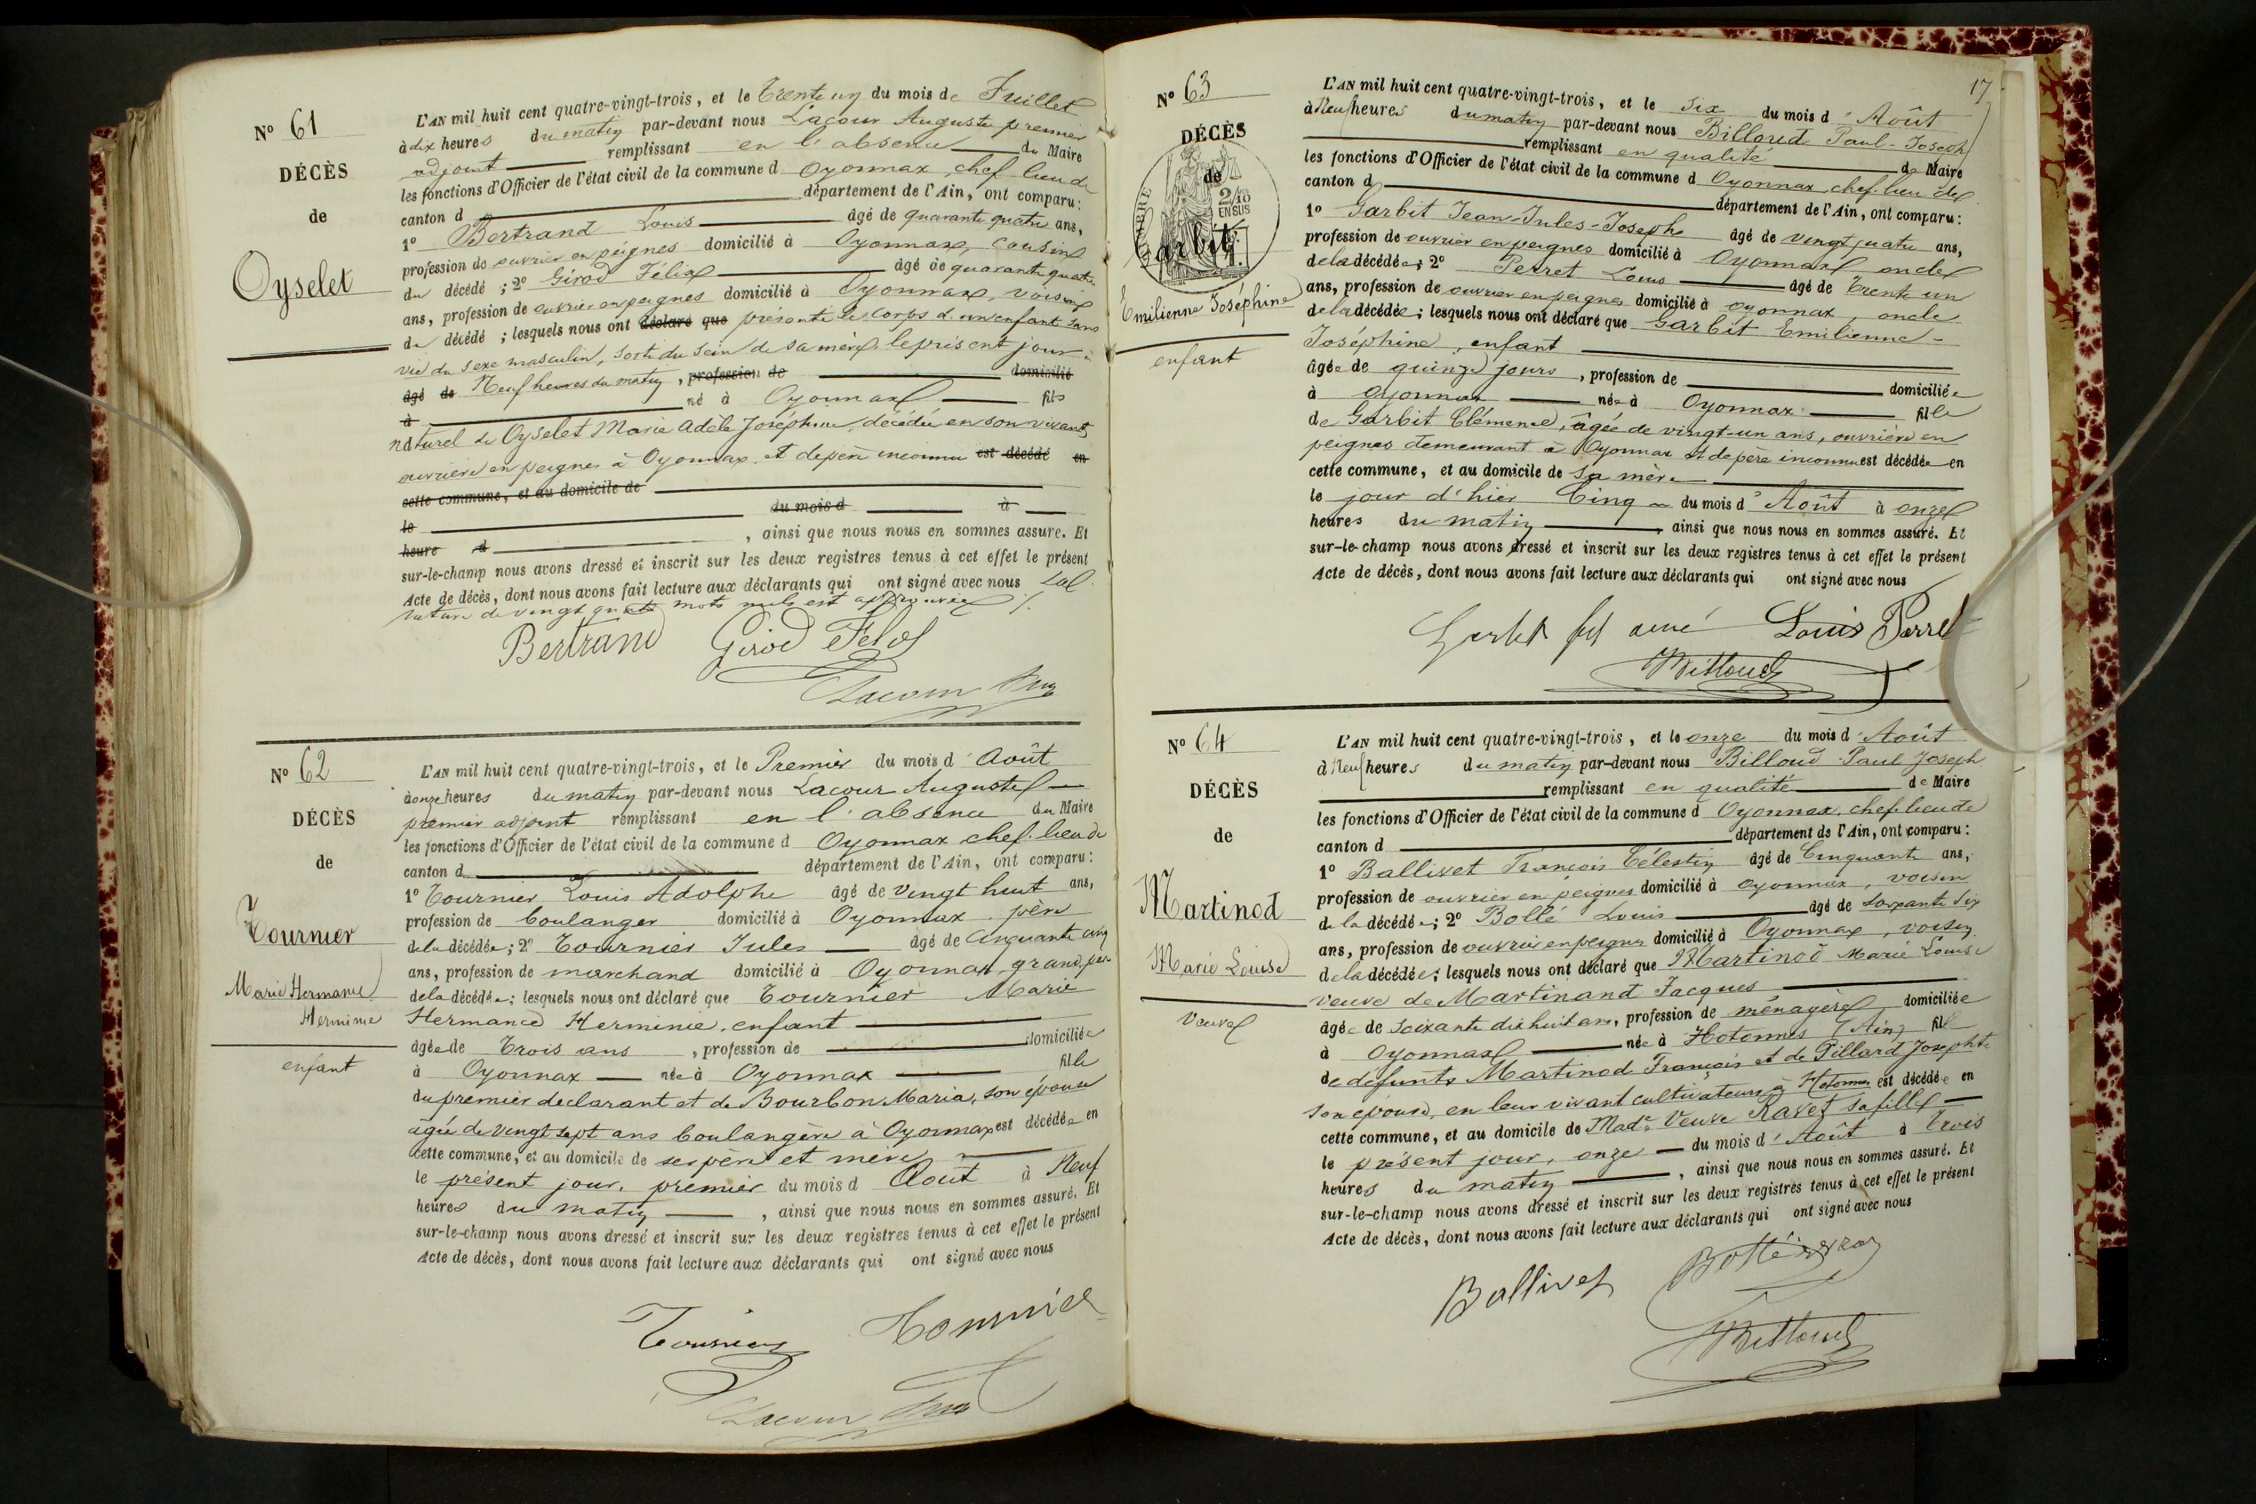 N° 61
DÉCÈS
de
Oyselet
L'AN mil huit cent quatre-vingt-trois, et le Trente un du mois de Juillet
à dix heures du matin par-devant nous Lacour Auguste premier
adjoint remplissant en l'absence du Maire
les fonctions d'Officier de l'état civil de la commune d Oyonnax, chef-lieu de
canton d département de l'Ain, ont comparu:
1° Bertrand Louis âgé de quarante quatre ans,
profession de ouvrier en peignes domicilié à Oyonnax, cousin
du décédé; 2° Girod Félix âgé de quarante quatre
ans, profession de ouvrier en peignes domicilié à Oyonnax, voisin
du décédé; lesquels nous ont déclaré que présenté le corps d'un enfant sans
vie du sexe masculin, sorti du sein de sa mère le présent jour à
âgé de Neuf heures du matin, profession de domicilié
à né à Oyonnax fils
naturel de Oyselet Marie Adèle Joséphine décédée en son vivant
ouvrière en peignes à Oyonnax et de père inconnu est décédé en
cette commune, et au domicile de
le du mois d à
heure d , ainsi que nous nous en sommes assuré. Et
sur-le-champ nous avons dressé et inscrit sur les deux registres tenus à cet effet le présent
Acte de décès, dont nous avons fait lecture aux déclarants qui ont signé avec nous
rature de vingt quatre mots nuls est approuvée
Bertrand Girod Félix
Lacour
N° 62
DÉCÈS
de
Tournier
Marie Hermance
Herminie
enfant
L'AN mil huit cent quatre-vingt-trois, et le Premier du mois d'Août
à onze heures du matin par-devant nous Lacour Auguste
premier adjoint remplissant en l'absence du Maire
les fonctions d'Officier de l'état civil de la commune d Oyonnax chef-lieu de
canton d département de l'Ain, ont comparu:
1° Tournier Louis Adolphe âgé de vingt huit ans,
profession de boulanger domicilié à Oyonnax père
de la décédée; 2° Tournier Jules âgé de cinquante cinq
ans, profession de marchand domicilié à Oyonnax, grand père
de la décédée; lesquels nous ont déclaré que Tournier Marie
Hermance Herminie, enfant
âgée de Trois ans, profession de domiciliée
à Oyonnax née à Oyonnax fille
du premier déclarant et de Bourbon Maria, son épouse
âgée de vingt sept ans boulangère à Oyonnax est décédée en
cette commune, et au domicile de ses père et mère
le présent jour, premier du mois d Août à Neuf
heures du matin, ainsi que nous nous en sommes assuré. Et
sur-le-champ nous avons dressé et inscrit sur les deux registres tenus à cet effet le présent
Acte de décès, dont nous avons fait lecture aux déclarants qui ont signé avec nous
Tournier Tournier
Lacour
17
N° 63
DÉCÈS
de
TIMBRE
2/10
EN SUS
Garbit
Emilienne Joséphine
enfant
L'AN mil huit cent quatre-vingt-trois, et le six du mois d'Août
à Neuf heures du matin par-devant nous Billoud Paul-Joseph
remplissant en qualité de Maire
les fonctions d'Officier de l'état civil de la commune d Oyonnax, chef-lieu de
canton d département de l'Ain, ont comparu:
1° Garbit Jean-Jules-Joseph âgé de vingt quatre ans,
profession de ouvrier en peignes domicilié à Oyonnax oncle
de la décédée; 2° Perret Louis âgé de Trente un
ans, profession de ouvrier en peignes domicilié à oyonnax, oncle
de la décédée; lesquels nous ont déclaré que Garbit Emilienne-
Joséphine, enfant
âgée de quinze jours, profession de domiciliée
à oyonnax née à Oyonnax fille
de Garbit Clémence, âgée de vingt-un ans, ouvrière en
peignes demeurant à Oyonnax et de père inconnu est décédée en
cette commune, et au domicile de sa mère
le jour d'hier Cinq du mois d'Août à onze
heures du matin, ainsi que nous nous en sommes assuré. Et
sur-le-champ nous avons dressé et inscrit sur les deux registres tenus à cet effet le présent
Acte de décès, dont nous avons fait lecture aux déclarants qui ont signé avec nous
Garbit fils ainé Louis Perret
Billoud
N° 64
DÉCÈS
de
Martinod
Marie Louise
veuve
L'AN mil huit cent quatre-vingt-trois, et le onze du mois d'Août
à Neuf heures du matin par-devant nous Billoud Paul Joseph
remplissant en qualité de Maire
les fonctions d'Officier de l'état civil de la commune d Oyonnax, chef-lieu de
canton d département de l'Ain, ont comparu:
1° Ballivet François Célestin âgé de Cinquante ans,
profession de ouvrier en peignes domicilié à oyonnax, voisin
de la décédée; 2° Bollé Louis âgé de soixante six
ans, profession de ouvrier en peignes domicilié à Oyonnax, voisin
de la décédée; lesquels nous ont déclaré que Martinod Marie Louise
veuve de Martinand Jacques
âgée de soixante dix huit ans, profession de ménagère domiciliée
à Oyonnax née à Hotonnes (Ain) fille
de défunts Martinod François et de Pillard Josephte
son épouse, en leur vivant cultivateurs à Hotonnes est décédée en
cette commune, et au domicile de Made Veuve Ravet sa fille
le présent jour, onze du mois d'Août à Trois
heures du matin, ainsi que nous nous en sommes assuré. Et
sur-le-champ nous avons dressé et inscrit sur les deux registres tenus à cet effet le présent
Acte de décès, dont nous avons fait lecture aux déclarants qui ont signé avec nous
Ballivet Bollé
Billoud